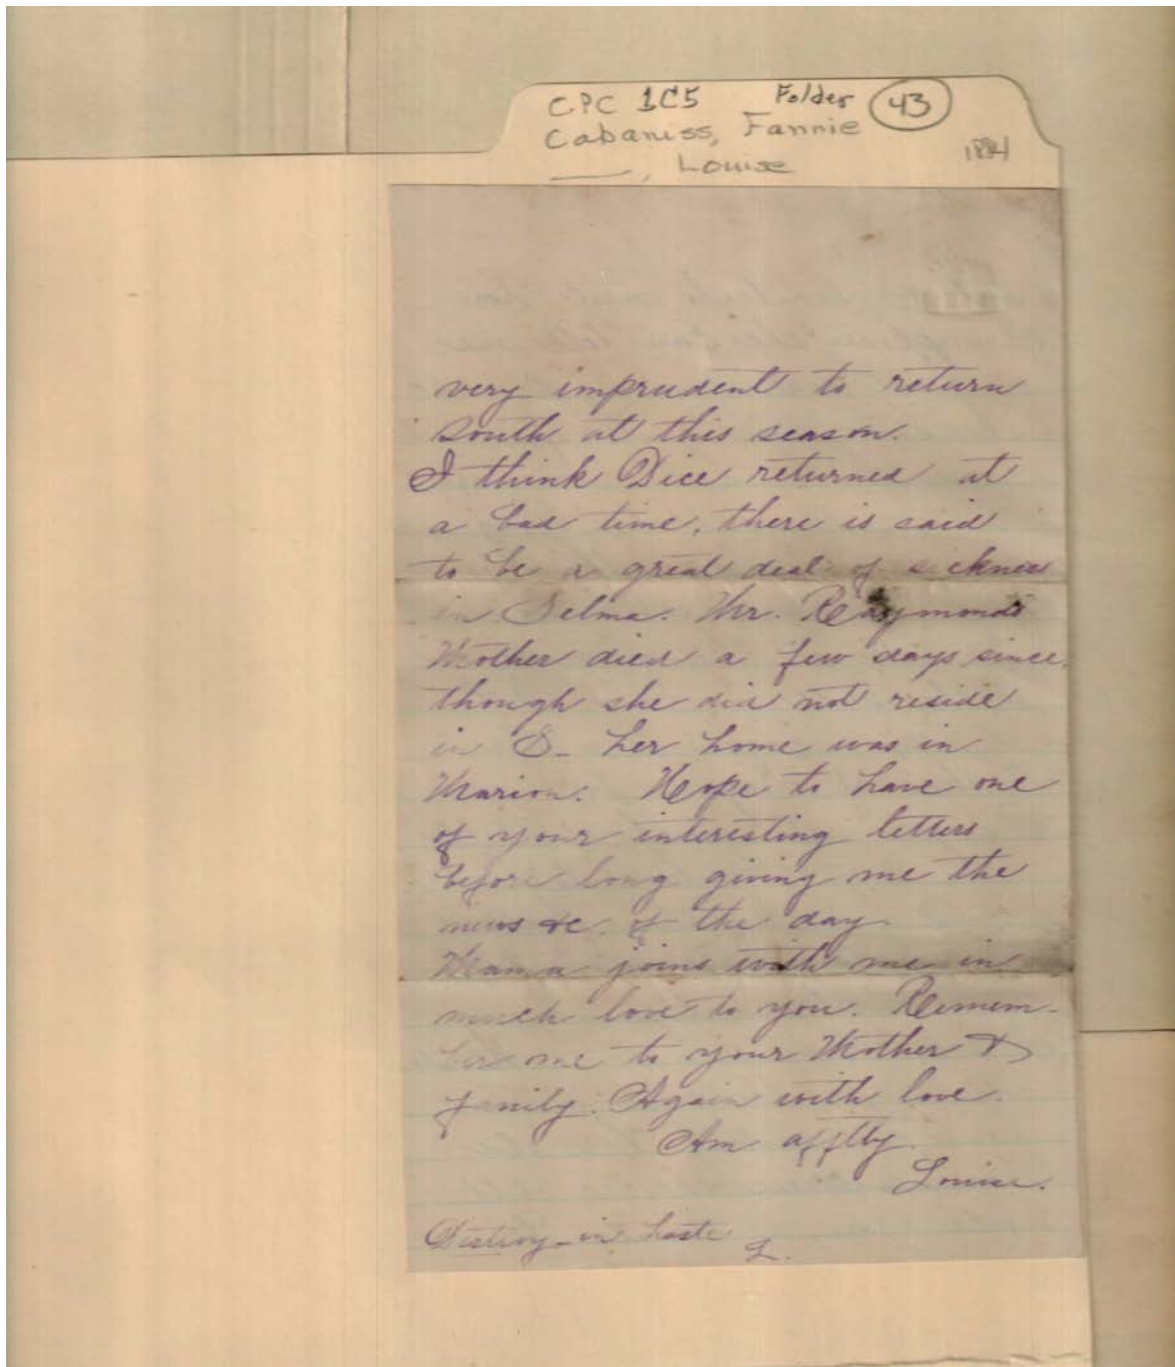 CPC 1C5 Folder 43
Cabaniss, Fannie
___, Louise 1884
very imprudent to return
South at this season.
I think Dice returned at
a bad time, there is said
to be a great deal of sickness
in Selma. Mr. Raymonds
Mother died a few days since,
though she did not reside
in S- her home was in
Marion. Hope to have one
of your interesting letters
before long giving me the
news &c. of the day.
Mama joins with me in
much love to you. Remem-
ber me to your Mother &
family. Again with love.
Am afftly.
Louise.
Destroy - in haste
L.